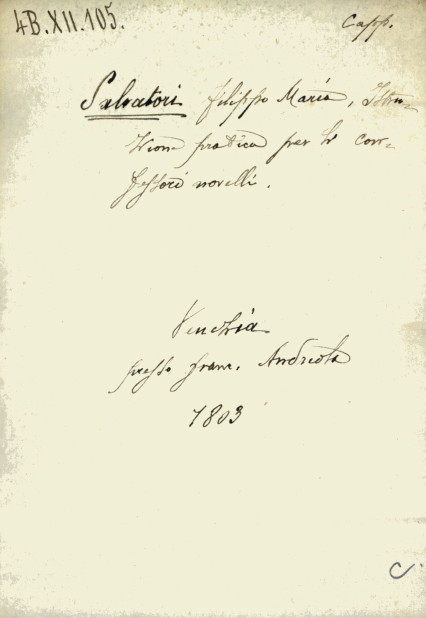 4B.XII.105.
Capp.
Salvatori Filippo Maria, Istru-
zione pratica per li con-
fessori novelli.
Venezia
presso Franc. Andreola
1803
C.